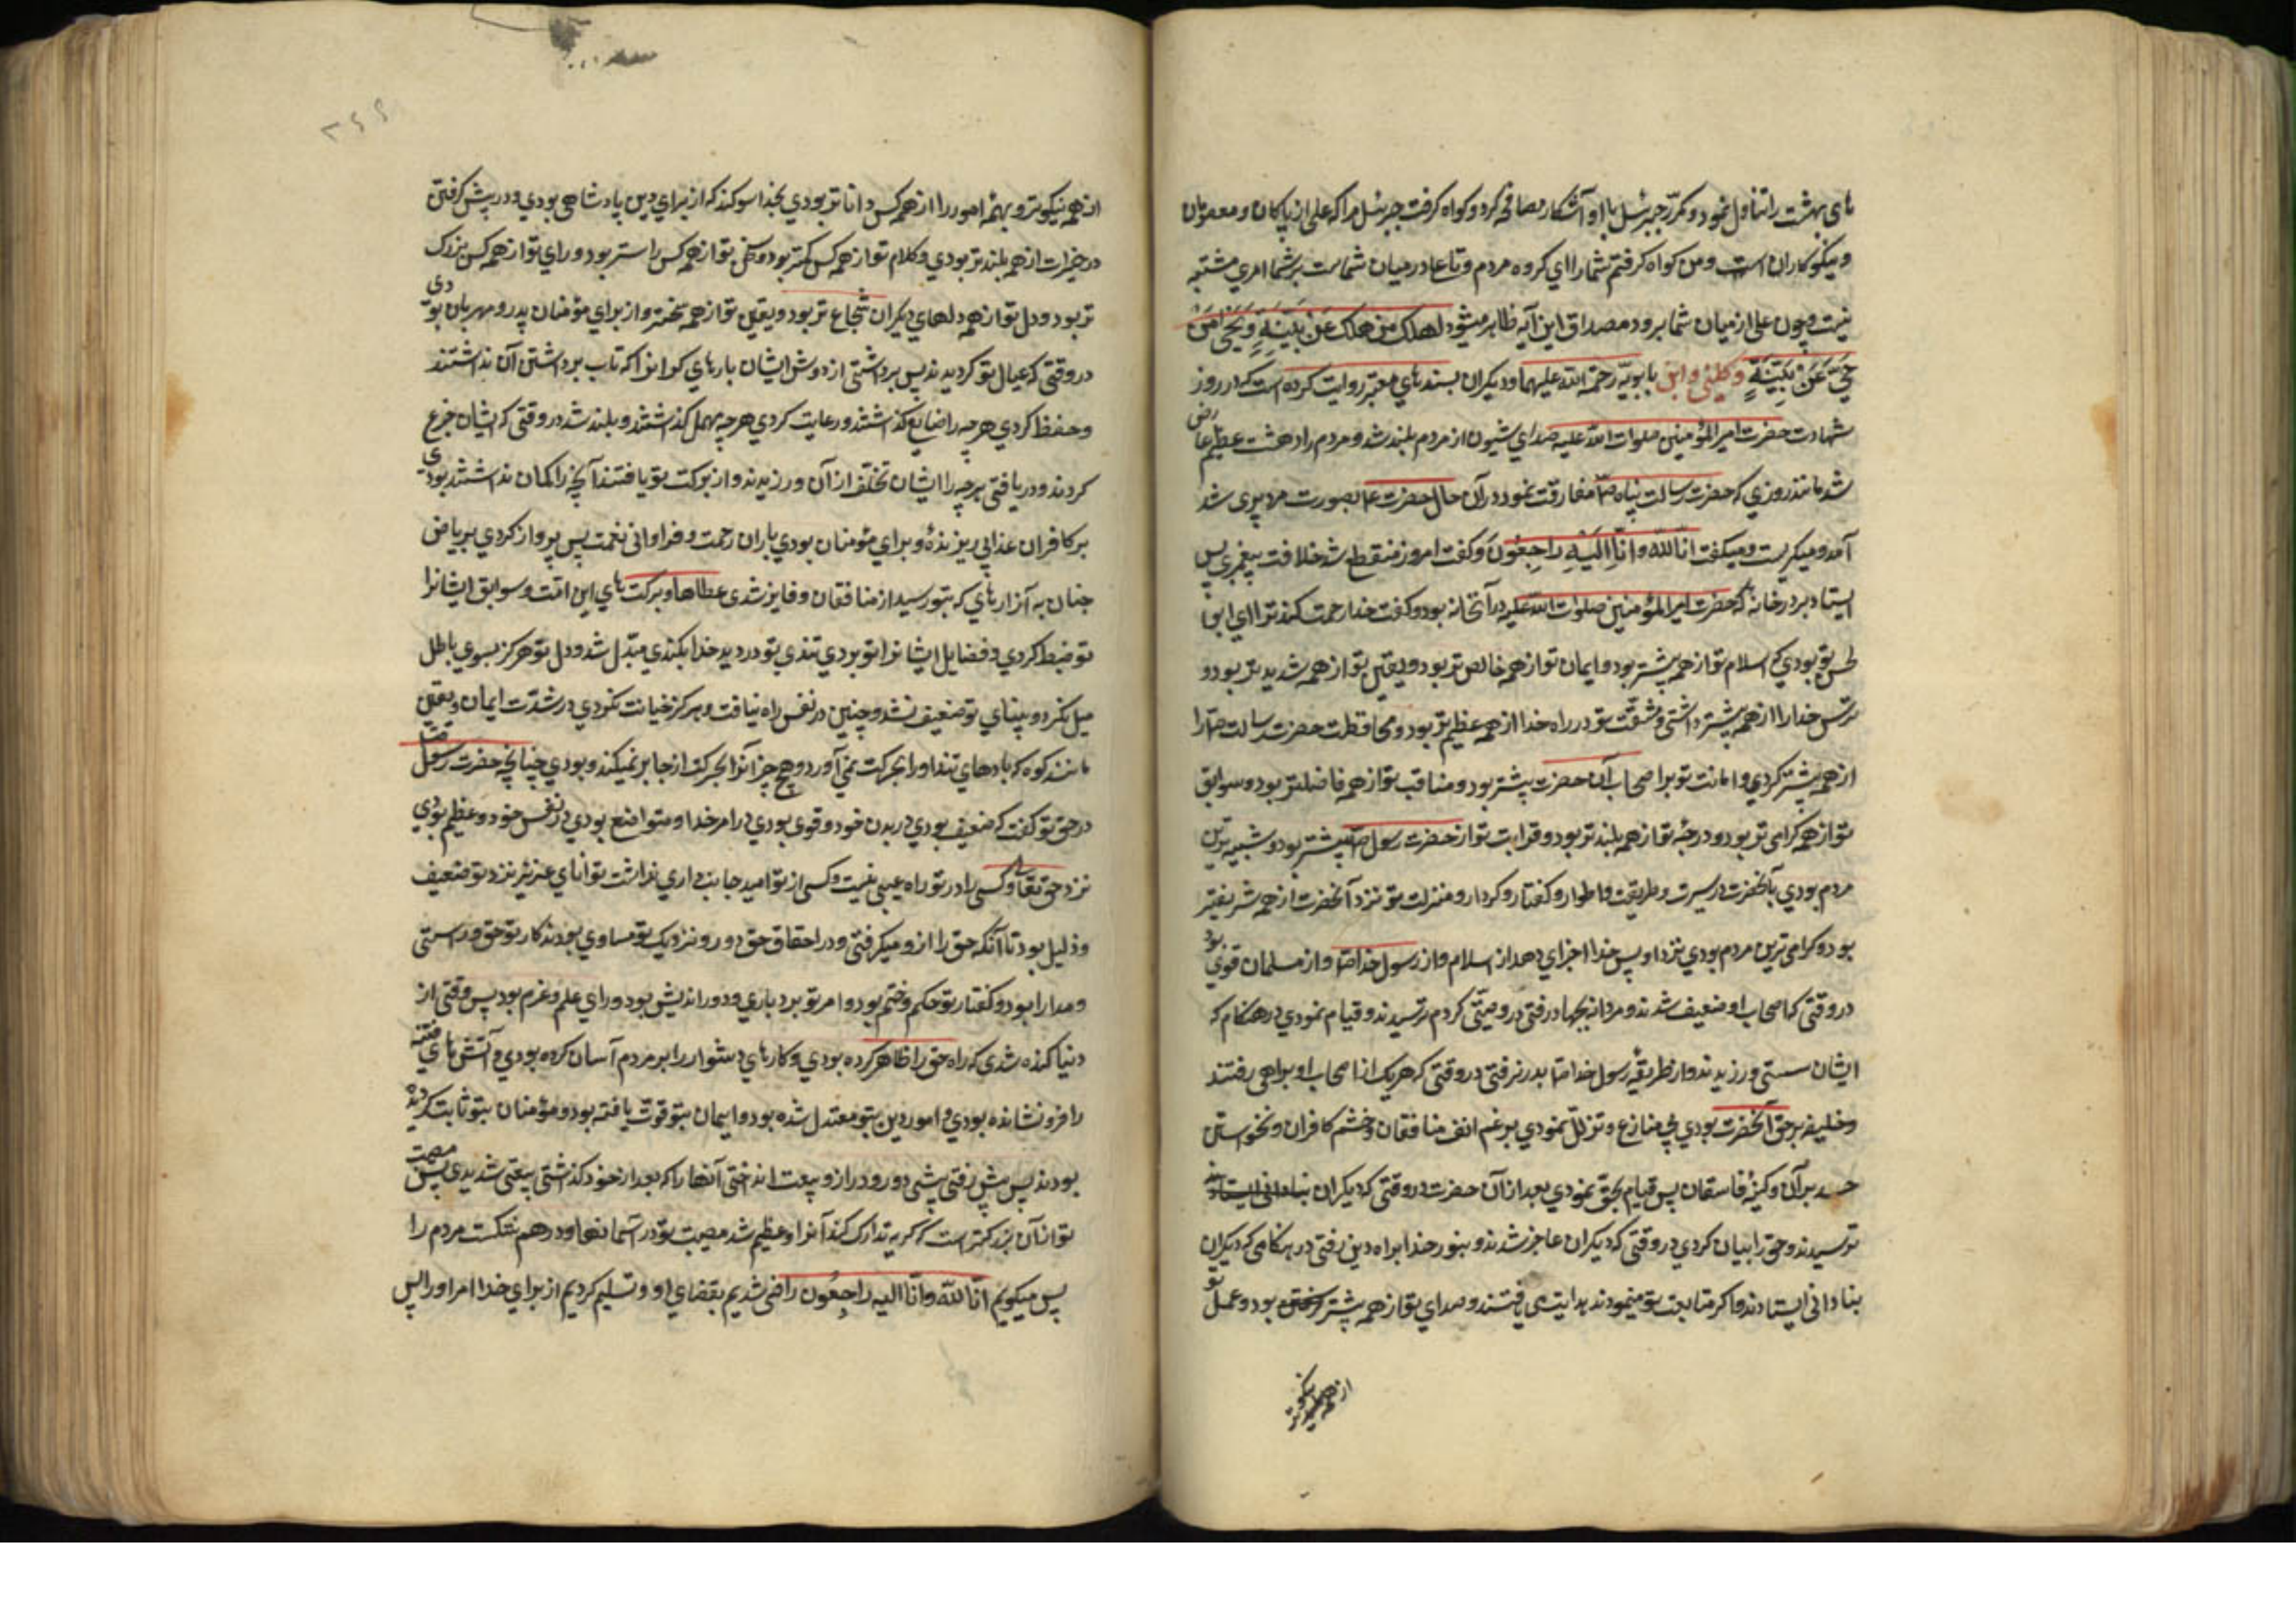 های بهشت را تناول نمود و مکرّر جبرئیل با او آشکار مصافحه کرد و کواه کرفت جبرئیل مرا که علی از پاکان و معصومان
و نیکوکاران است و من کواه کرفتم شما را ای کروه مردم و تا عا در میان شماست بر شما امری مشتبه
نیست و چون علی از میان شما برود مصداق این آیه ظاهر میشود لِیَهلِکَ مَن هَلَکَ عَن بَیِّنَةٍ وَیَحیٰی مَن
حَیَّ عَن بَیِّنَةٍ وکلینی وابن بابویّه رحمة اللّه علیهما و دیکران بسندهای معتبر روایت کرده است که در روز
شهادت حضرت امیر المؤمنین صلوات اللّه علیه صدای شیون از مردم بلند شد و مردم را دهشت عظیم عارض
شد مانند روزی که حضرت رسالت پناه صم مفارقت نمود در آن حال حضرت عا بصورت مرد پیری شد
آمد و میکریست و میکفت انّا للّه وانّا الَیهِ راجِعُونَ و کفت امروز منقطع شد خلافت پیغمبری پس
ایستاد بر در خانه که حضرت امیر المؤمنین صلوات اللّه علیه در آنخانه بود و کفت خدا رحمت کند ترا ای ابوا
لحسن تو بودی که اسلام تو از همه پیشتر بود و ایمان تو از همه خالص تر بود و یقین تو از همه شدید تر بود و
ترس خدا را از همه پیشتر داشتی و مشقّت تو در راه خدا از همه عظیم تر بود و محافظت حضرت رسالت صم را
از همه پیشتر کردی و امانت تو بر اصحاب آن حضرت پیشتر بود و مناقب تو از همه فاضلتر بود و سوابق
تو از همه کرامی تر بود و درجهٔ تو از همه بلند تر بود و قرابت تو از حضرت رسول صم پیشتر بود و شبیه ترین
مردم بودی بآنحضرت در سیرت و طریقت و اطوار و کفتار و کردار و منزلت تو نزد آنحضرت از همه شریفتر
بود و کرامی ترین مردم بودی نزد او پس خدا اجزای دهد از اسلام و از رسول خدا صم و از مسلمانان قوی بودی
در وقتی که اصحاب او ضعیف شدند و مردانه بجهاد رفتی در وقتی کردم ترسیدند و قیام نمودی در هنکام که
ایشان سستی ورزیدند و از طریقهٔ رسول خدا صم بدر نرفتی در وقتی که هر یک از اصحاب او براهی رفتند
و خلیفه بر حق آنحضرت بودی بی منازع و تزلّل نمودی برغم انف منافقان و خشم کافران و نخواستن
حسد بران و کینهٔ فاسقان پس قیام بحق نمودی بعد از آن حضرت در وقتی که دیکران
ترسیدند و حق را بیان کردی در وقتی که دیکران عاجز شدند و بنور خدا براه دین رفتی در هنکامی که دیکران
بنادانی ایستادند و اکر متابعت تو مینمودند هدایت می یافتند و صدای تو از همه پشتر بود و عمل تو
از همه نیکوتر
۲۶۶
از همه نیکوتر و بهمه امور را از همه کس دانا تر بودی بخدا سوکند که از برای دین پادشاهی بودی و در پیش کرفتی
در خیرات از همه بلند تر بودی و کلام تو از همه کس کمتر بود و سخن تو از همه کس راستر بود و رای تو از همه کس بزرک
تر بود و دل تو از همه دلهای دیکران شجاع تر بود و یقین تو از همه سختر و از برای مؤمنان پدر و مهربان بودی
در وقتی که عیال تو کردیدند پس برداشتی از دوش ایشان بارهای کرانرا که تاب برداشتن آن نداشتند
و حفظ کردی هر چه را ضایع کذاشتند و رعایت کردی هر چه مهمل کذاشتند و بلند شد در وقتی که ایشان جزع
کردند و دریافتی هر چه را ایشان تخلّف از آن ورزیدند و از برکت تو یافتند آنچه را کمان نداشتند بودی
بر کافران عذابی ریزنده و برای مؤمنان بودی باران رحمت و فراوانی نعمت پس پرواز کردی بریاض
جنان به آزارهای که بتو رسید از منافقان و فایز شدی عطاها و برکت های این امّت و سوابق ایشانرا
تو ضبط کردی و فضایل ایشانرا تو بردی تندی تو در دید خدا بکندی مبدّل شد و دل تو هرکز بسوی باطل
میل نکرد و بینای تو ضعیف نشد و چنین در نفس راه نیافت و هرکز خیانت نکردی در شدّت ایمان و یقین
مانند کوه که بادهای تند او را بحرکت نمی آورد و هیچ چیز آنرا بحرکت از جا بر نمیکند و بودی چنانچه حضرت رسول صم
در حق تو کفت که ضعیف بودی در بدن خود و قوی بودی در امر خدا و متواضع بودی در نفس خود و عظیم بودی
نزد حق تعا و کسی را در تو راه عیبی نیست و کسی از تو امید جانب داری نداشت توانای عزیز نزد تو ضعیف
و ذلیل بود تا آنکه حق را از و میکرفتی و در احقاق حق دور و نزدیک تو مساوی بودند کار تو حق و راستی
و مدارا بود و کفتار تو حکم و ختم بود و امر تو بردباری و دور اندیش بود و رای علم و عزم بود پس وقتی از
دنیا کنده شدی که راه حق را ظاهر کرده بودی و کارهای دشوار را بر مردم آسان کرده بودی و آتش های فتنه
را فرو نشانده بودی و امور دین بتو معتدل شده بود و ایمان بتو قوّت یافته بود و مؤمنان بتو ثابت کردیده
بودند پس پیش رفتی پیشی دور و دراز و بتعب انداختی آنها را که بعد از خود کذاشتی تعبی شدیدی پس مصیبت
تو از آن بزرکتر است که کریه تدارک کند آنرا و عظیم شد مصیبت تو در آسمانها و درهم شکست مردم را
پس میکویم انّا للّه وانّا الیه راجِعُون راضی شدیم بقضای او و تسلیم کردیم از برای خدا امر او را پس